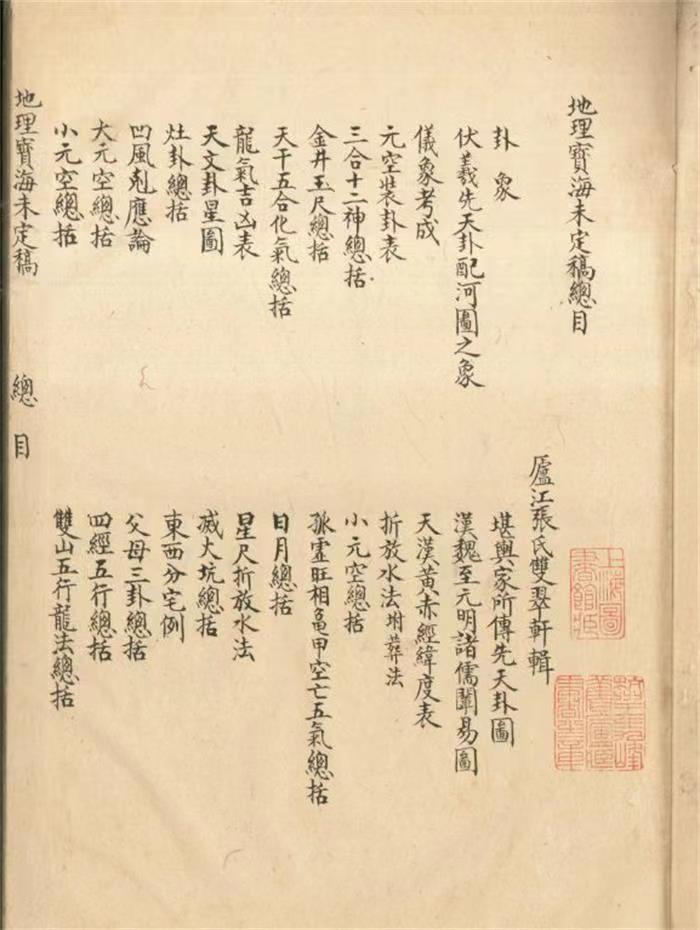 地理寶海未定稿總目
廬江張氏雙翠軒輯
卦象
堪輿家所傳先天卦圖
伏羲先天卦配河圖之象
漢魏至元明諸儒闡易圖
儀象考成
天漢黃赤經緯度表
元空裝卦表
折放水法附葬法
三合十二神總括
小元空總括
金井玉尺總括
孤虛旺相龜甲空亡五氣總括
天干五合化氣總括
日月總括
龍氣吉凶表
星尺折放水法
天文卦星圖
滅大坑總括
灶卦總括
東西分宅例
凹風剋應論
父母三卦總括
大元空總括
四經五行總括
小元空總括
雙山五行龍法總括
地理寶海未定稿
總目
上海圖書館藏